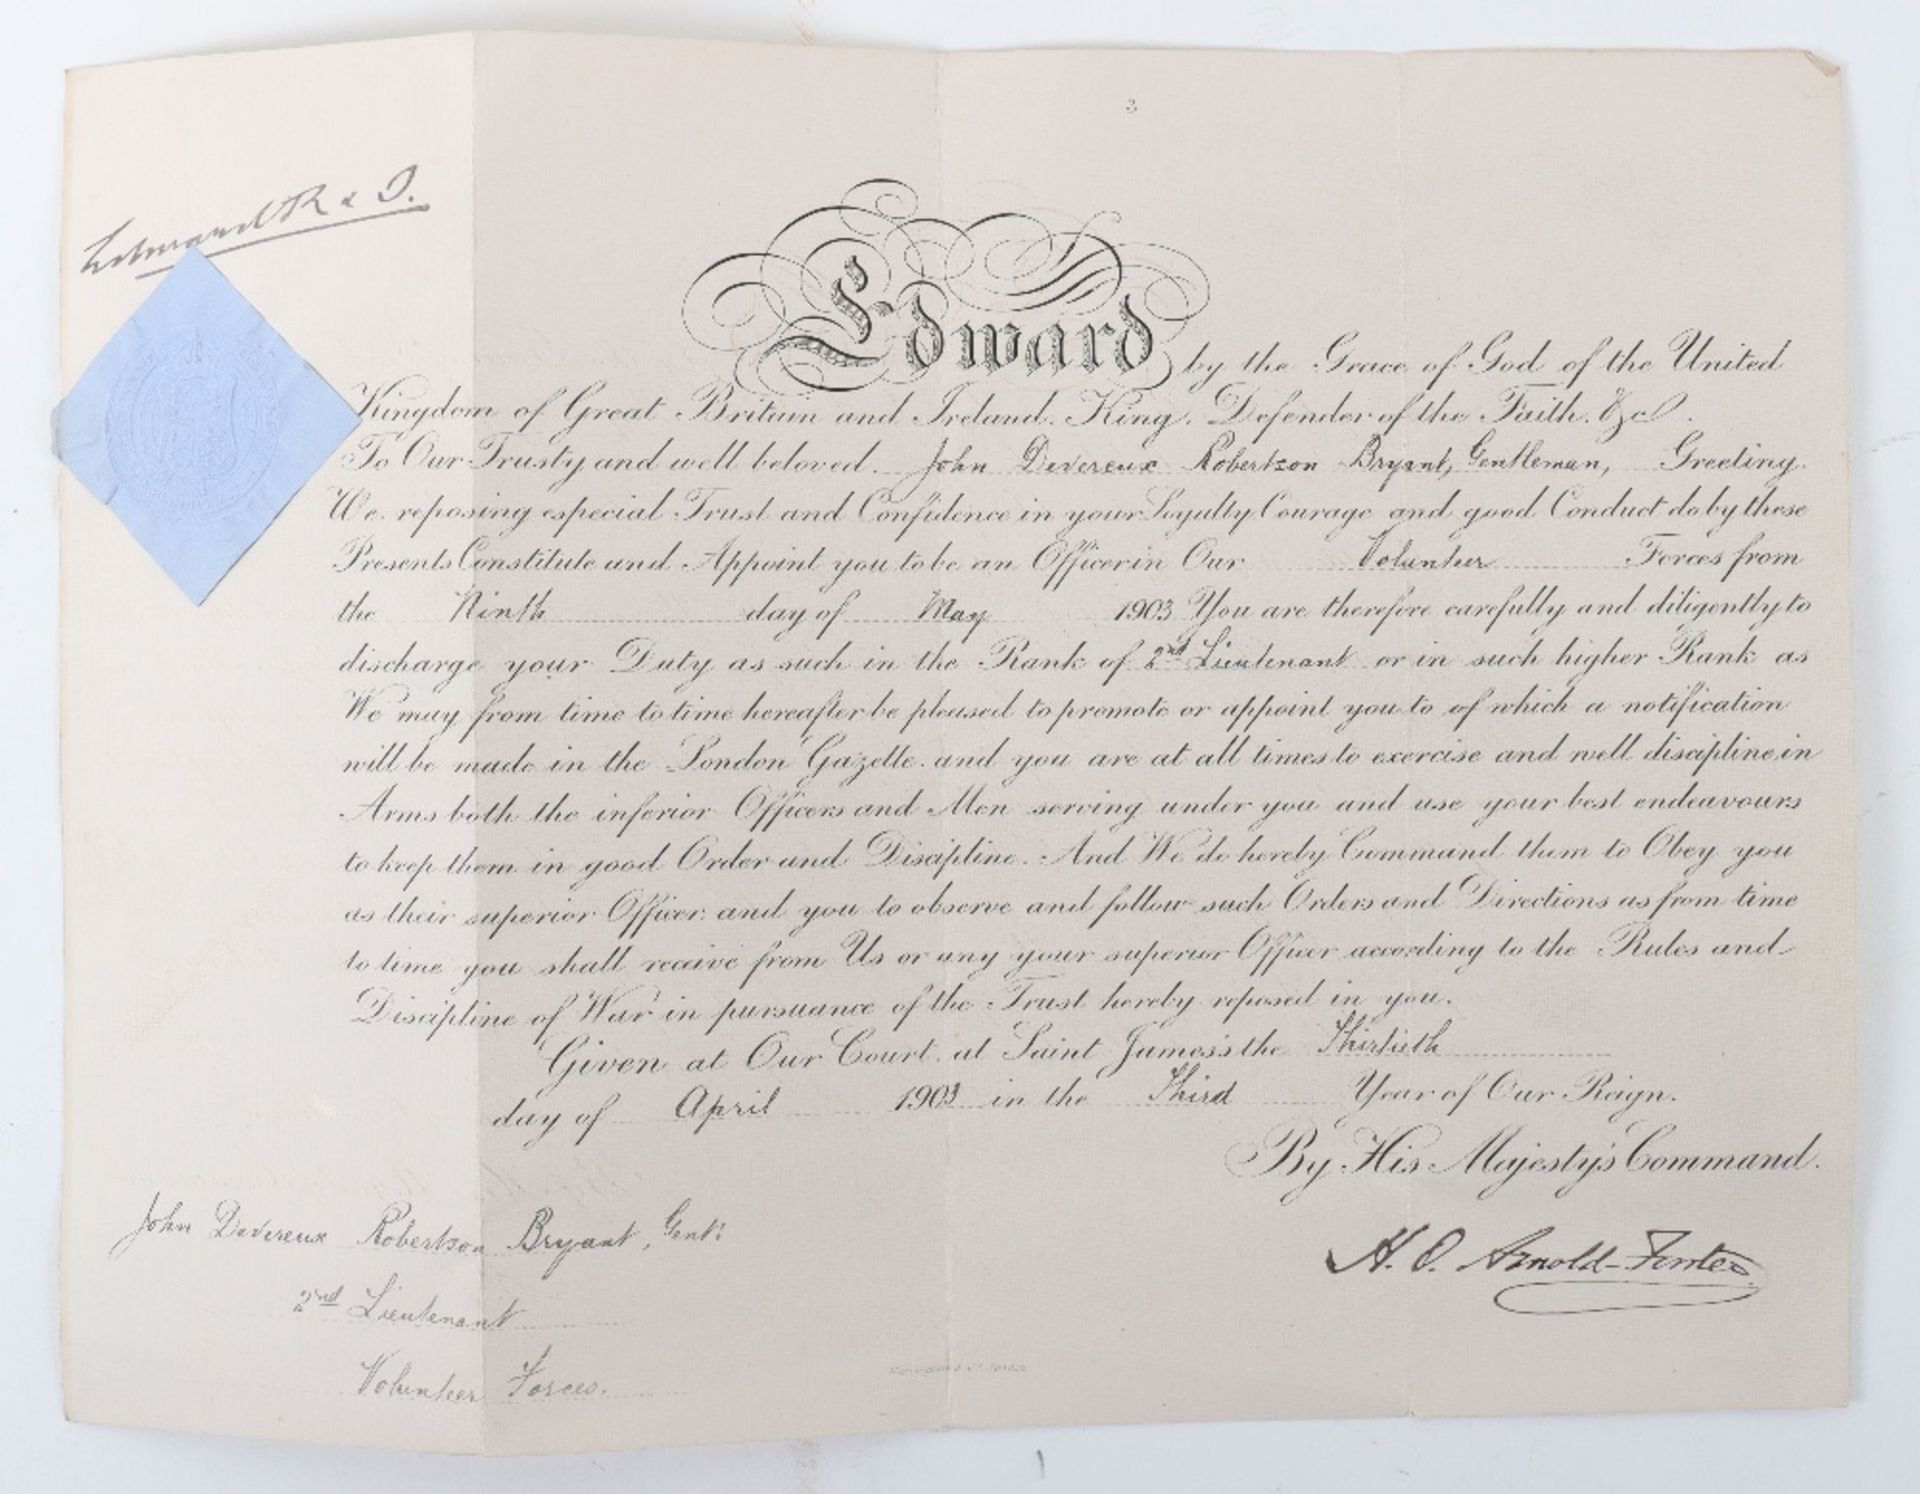 3
Edward R & I.
Edward by the Grace of God of the United
Kingdom of Great Britain and Ireland. King. Defender of the Faith. &c.
To Our Trusty and well beloved. John Devereux Robertson Bryant, Gentleman, Greeting.
We. reposing especial Trust and Confidence in your Loyalty Courage and good Conduct do by these
Presents Constitute and Appoint you to be an Officer in Our Volunteer Forces from
the Ninth day of May 1903 You are therefore carefully and diligently to
discharge your Duty as such in the Rank of 2nd Lieutenant or in such higher Rank as
We may from time to time hereafter be pleased to promote or appoint you to of which a notification
will be made in the London Gazette. and you are at all times to exercise and well discipline in
Arms both the inferior Officers and Men serving under you and use your best endeavours
to keep them in good Order and Discipline. And We do hereby Command them to Obey you
as their superior Officer. and you to observe and follow such Orders and Directions as from time
to time you shall receive from Us or any your superior Officer according to the Rules and
Discipline of War in pursuance of the Trust hereby reposed in you.
Given at Our Court. at Saint James's the Thirtieth
day of April 1903 in the Third Year of Our Reign.
By His Majesty's Command.
John Devereux Robertson Bryant, Gent:
H. O. Arnold-Forster
2nd Lieutenant
Volunteer Forces.